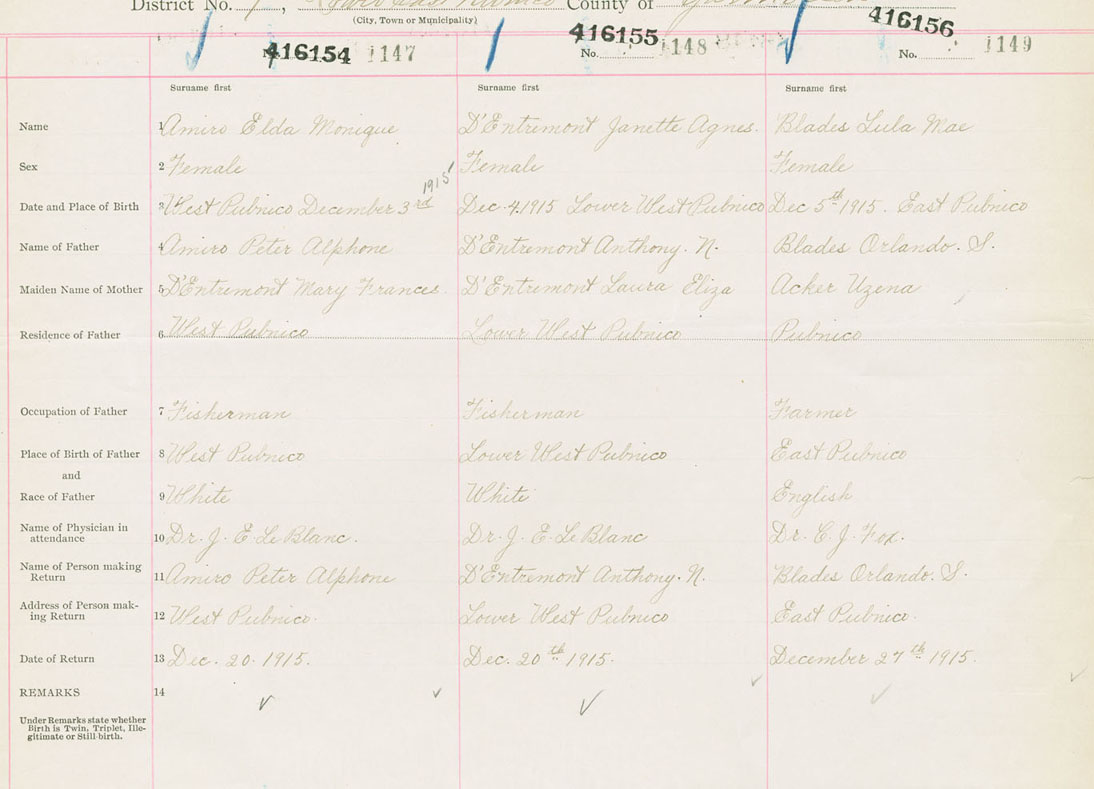 District No. 7, Lower East Pubnico County of
(City, Town or Municipality)
No. 416154 1147 No. 416155 1148 No. 416156 1149
Surname first Surname first Surname first
Name 1 Amiro Elda Monique D'Entremont Janette Agnes. Blades Lula Mae
Sex 2 Female Female Female
1915
Date and Place of Birth 3 West Pubnico December 3rd Dec. 4 1915 Lower West Pubnico Dec 5th 1915. East Pubnico
Name of Father 4 Amiro Peter Alphone D'Entremont Anthony. N. Blades Orlando. S.
Maiden Name of Mother 5 D'Entremont Mary Frances. D'Entremont Laura Eliza Acker Uzena
Residence of Father 6 West Pubnico Lower West Pubnico Pubnico
Occupation of Father 7 Fisherman Fisherman Farmer
Place of Birth of Father 8 West Pubnico Lower West Pubnico East Pubnico
and
Race of Father 9 White White English
Name of Physician in
attendance 10 Dr. J. E. Le Blanc. Dr. J. E. Le Blanc Dr. C. J. Fox.
Name of Person making
Return 11 Amiro Peter Alphone D'Entremont Anthony. N. Blades Orlando. S.
Address of Person mak-
ing Return 12 West Pubnico. Lower West Pubnico East Pubnico.
Date of Return 13 Dec. 20. 1915. Dec. 20th 1915. December 27th 1915.
REMARKS 14
Under Remarks state whether
Birth is Twin, Triplet, Ille-
gitimate or Still-birth.